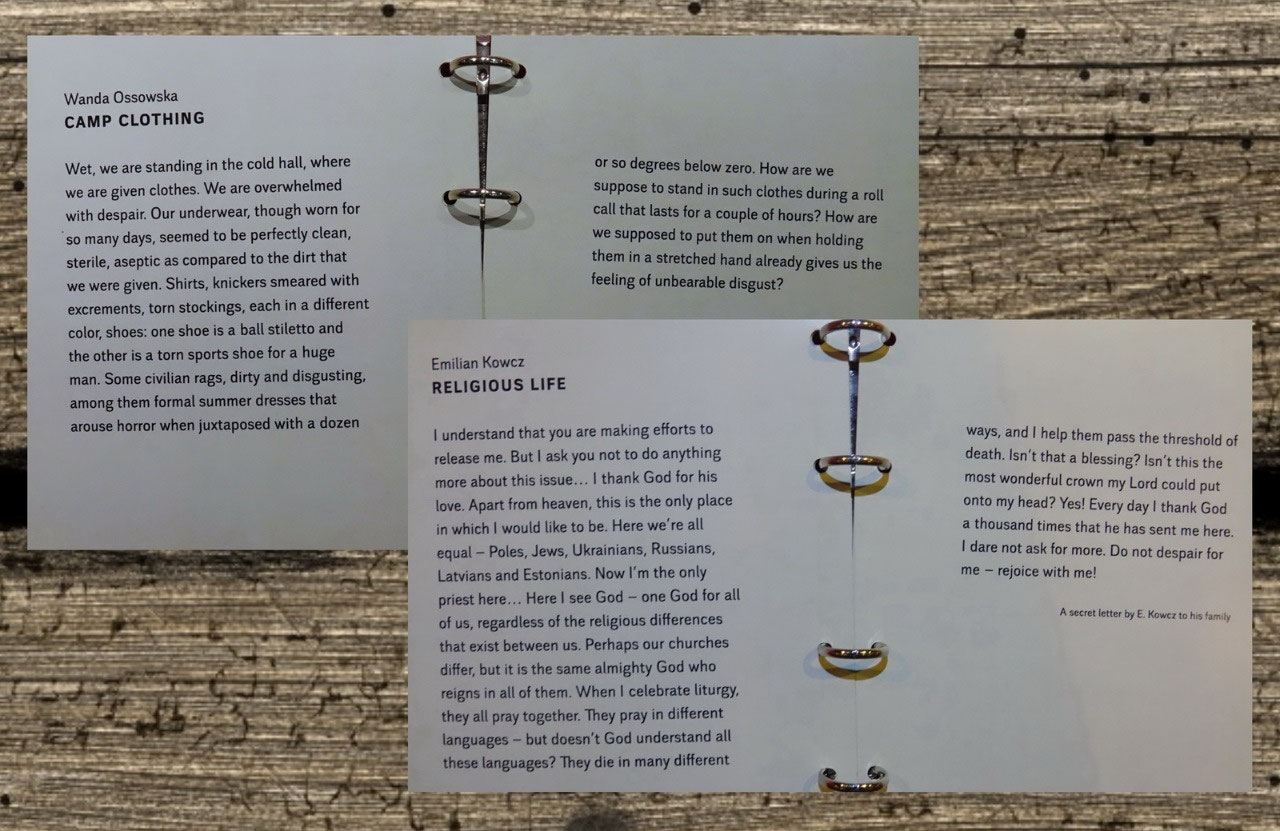 Wanda Ossowska
CAMP CLOTHING
Wet, we are standing in the cold hall, where
we are given clothes. We are overwhelmed
with despair. Our underwear, though worn for
so many days, seemed to be perfectly clean,
sterile, aseptic as compared to the dirt that
we were given. Shirts, knickers smeared with
excrements, torn stockings, each in a different
color, shoes: one shoe is a ball stiletto and
the other is a torn sports shoe for a huge
man. Some civilian rags, dirty and disgusting,
among them formal summer dresses that
arouse horror when juxtaposed with a dozen
or so degrees below zero. How are we
suppose to stand in such clothes during a roll
call that lasts for a couple of hours? How are
we supposed to put them on when holding
them in a stretched hand already gives us the
feeling of unbearable disgust?
Emilian Kowcz
RELIGIOUS LIFE
I understand that you are making efforts to
release me. But I ask you not to do anything
more about this issue… I thank God for his
love. Apart from heaven, this is the only place
in which I would like to be. Here we're all
equal – Poles, Jews, Ukrainians, Russians,
Latvians and Estonians. Now I'm the only
priest here… Here I see God – one God for all
of us, regardless of the religious differences
that exist between us. Perhaps our churches
differ, but it is the same almighty God who
reigns in all of them. When I celebrate liturgy,
they all pray together. They pray in different
languages – but doesn't God understand all
these languages? They die in many different
ways, and I help them pass the threshold of
death. Isn't that a blessing? Isn't this the
most wonderful crown my Lord could put
onto my head? Yes! Every day I thank God
a thousand times that he has sent me here.
I dare not ask for more. Do not despair for
me – rejoice with me!
A secret letter by E. Kowcz to his family